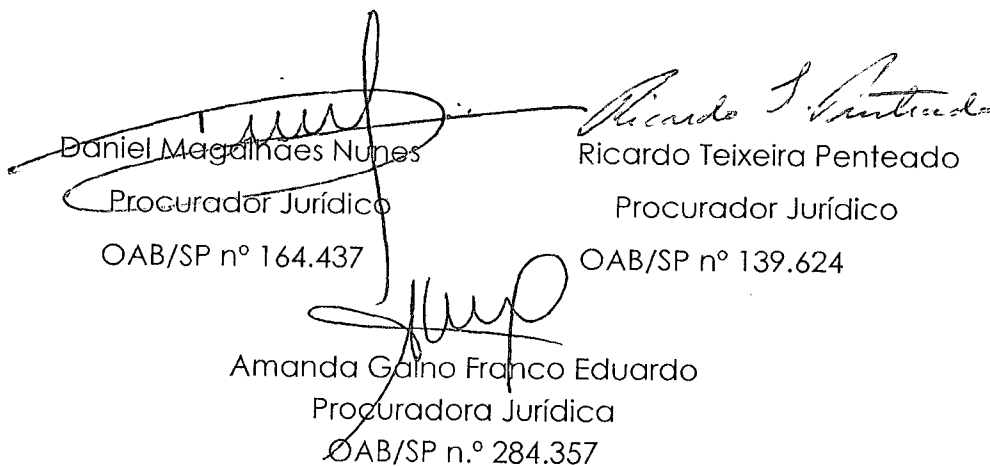 Ricardo T. Penteado
Daniel Magalhães Nunes
Procurador Jurídico
OAB/SP nº 164.437
Ricardo Teixeira Penteado
Procurador Jurídico
OAB/SP nº 139.624
Amanda Gaino Franco Eduardo
Procuradora Jurídica
OAB/SP n.º 284.357